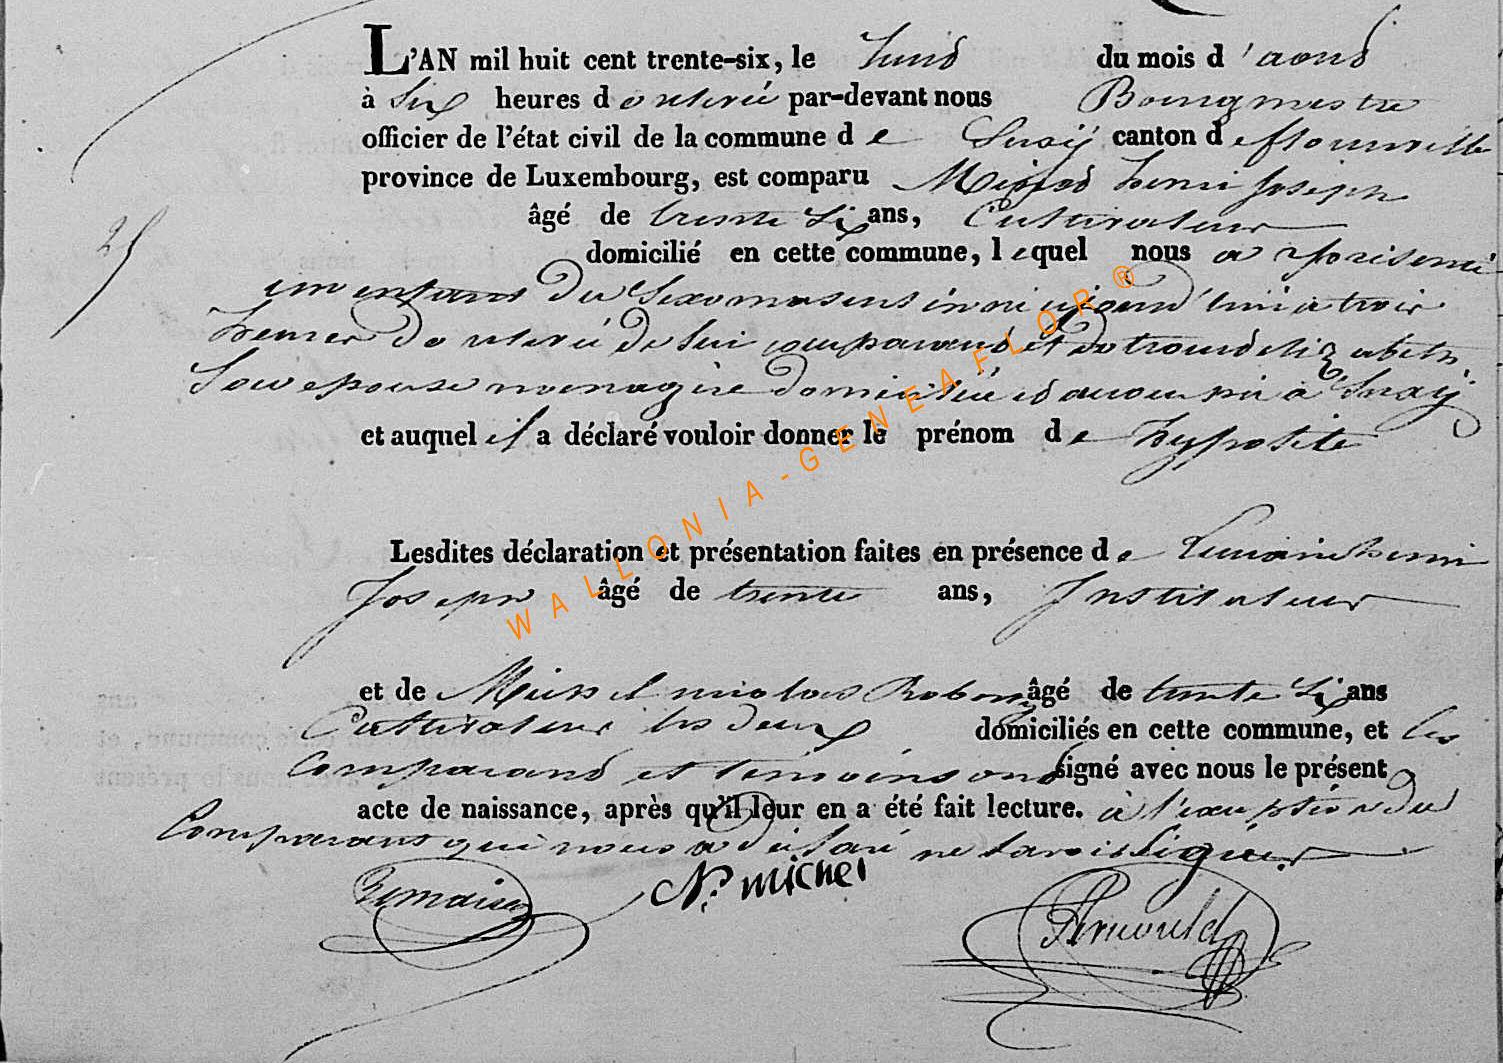 L'AN mil huit cent trente-six, le huid du mois d'aoud
à six heures de relevé par-devant nous Bourgmestre
officier de l'état civil de la commune de Suxÿ canton de florenville
province de Luxembourg, est comparu henri joseph
âgé de trente six ans, Cultivateur
domicilié en cette commune, lequel nous a présenté
25
un enfant du Sexe masculin né aujourd'hui a trois
heures de relevé de lui comparand et de elizabeth
Son epouse menagère domiciliée à Suxÿ
et auquel il a déclaré vouloir donner le prénom de hypolite
Lesdites déclaration et présentation faites en présence de henri
Joseph âgé de trente ans, Instituteur
et de Michel nicolas âgé de trente six ans
Cultivateur les deux domiciliés en cette commune, et les
Comparand et temoins ond signé avec nous le présent
acte de naissance, après qu'il leur en a été fait lecture. à l'exeption du
Comparant qui nous a déclaré ne savoir Signer
N. michel
Arnould
WALLONIA-GENEAFLOR ®